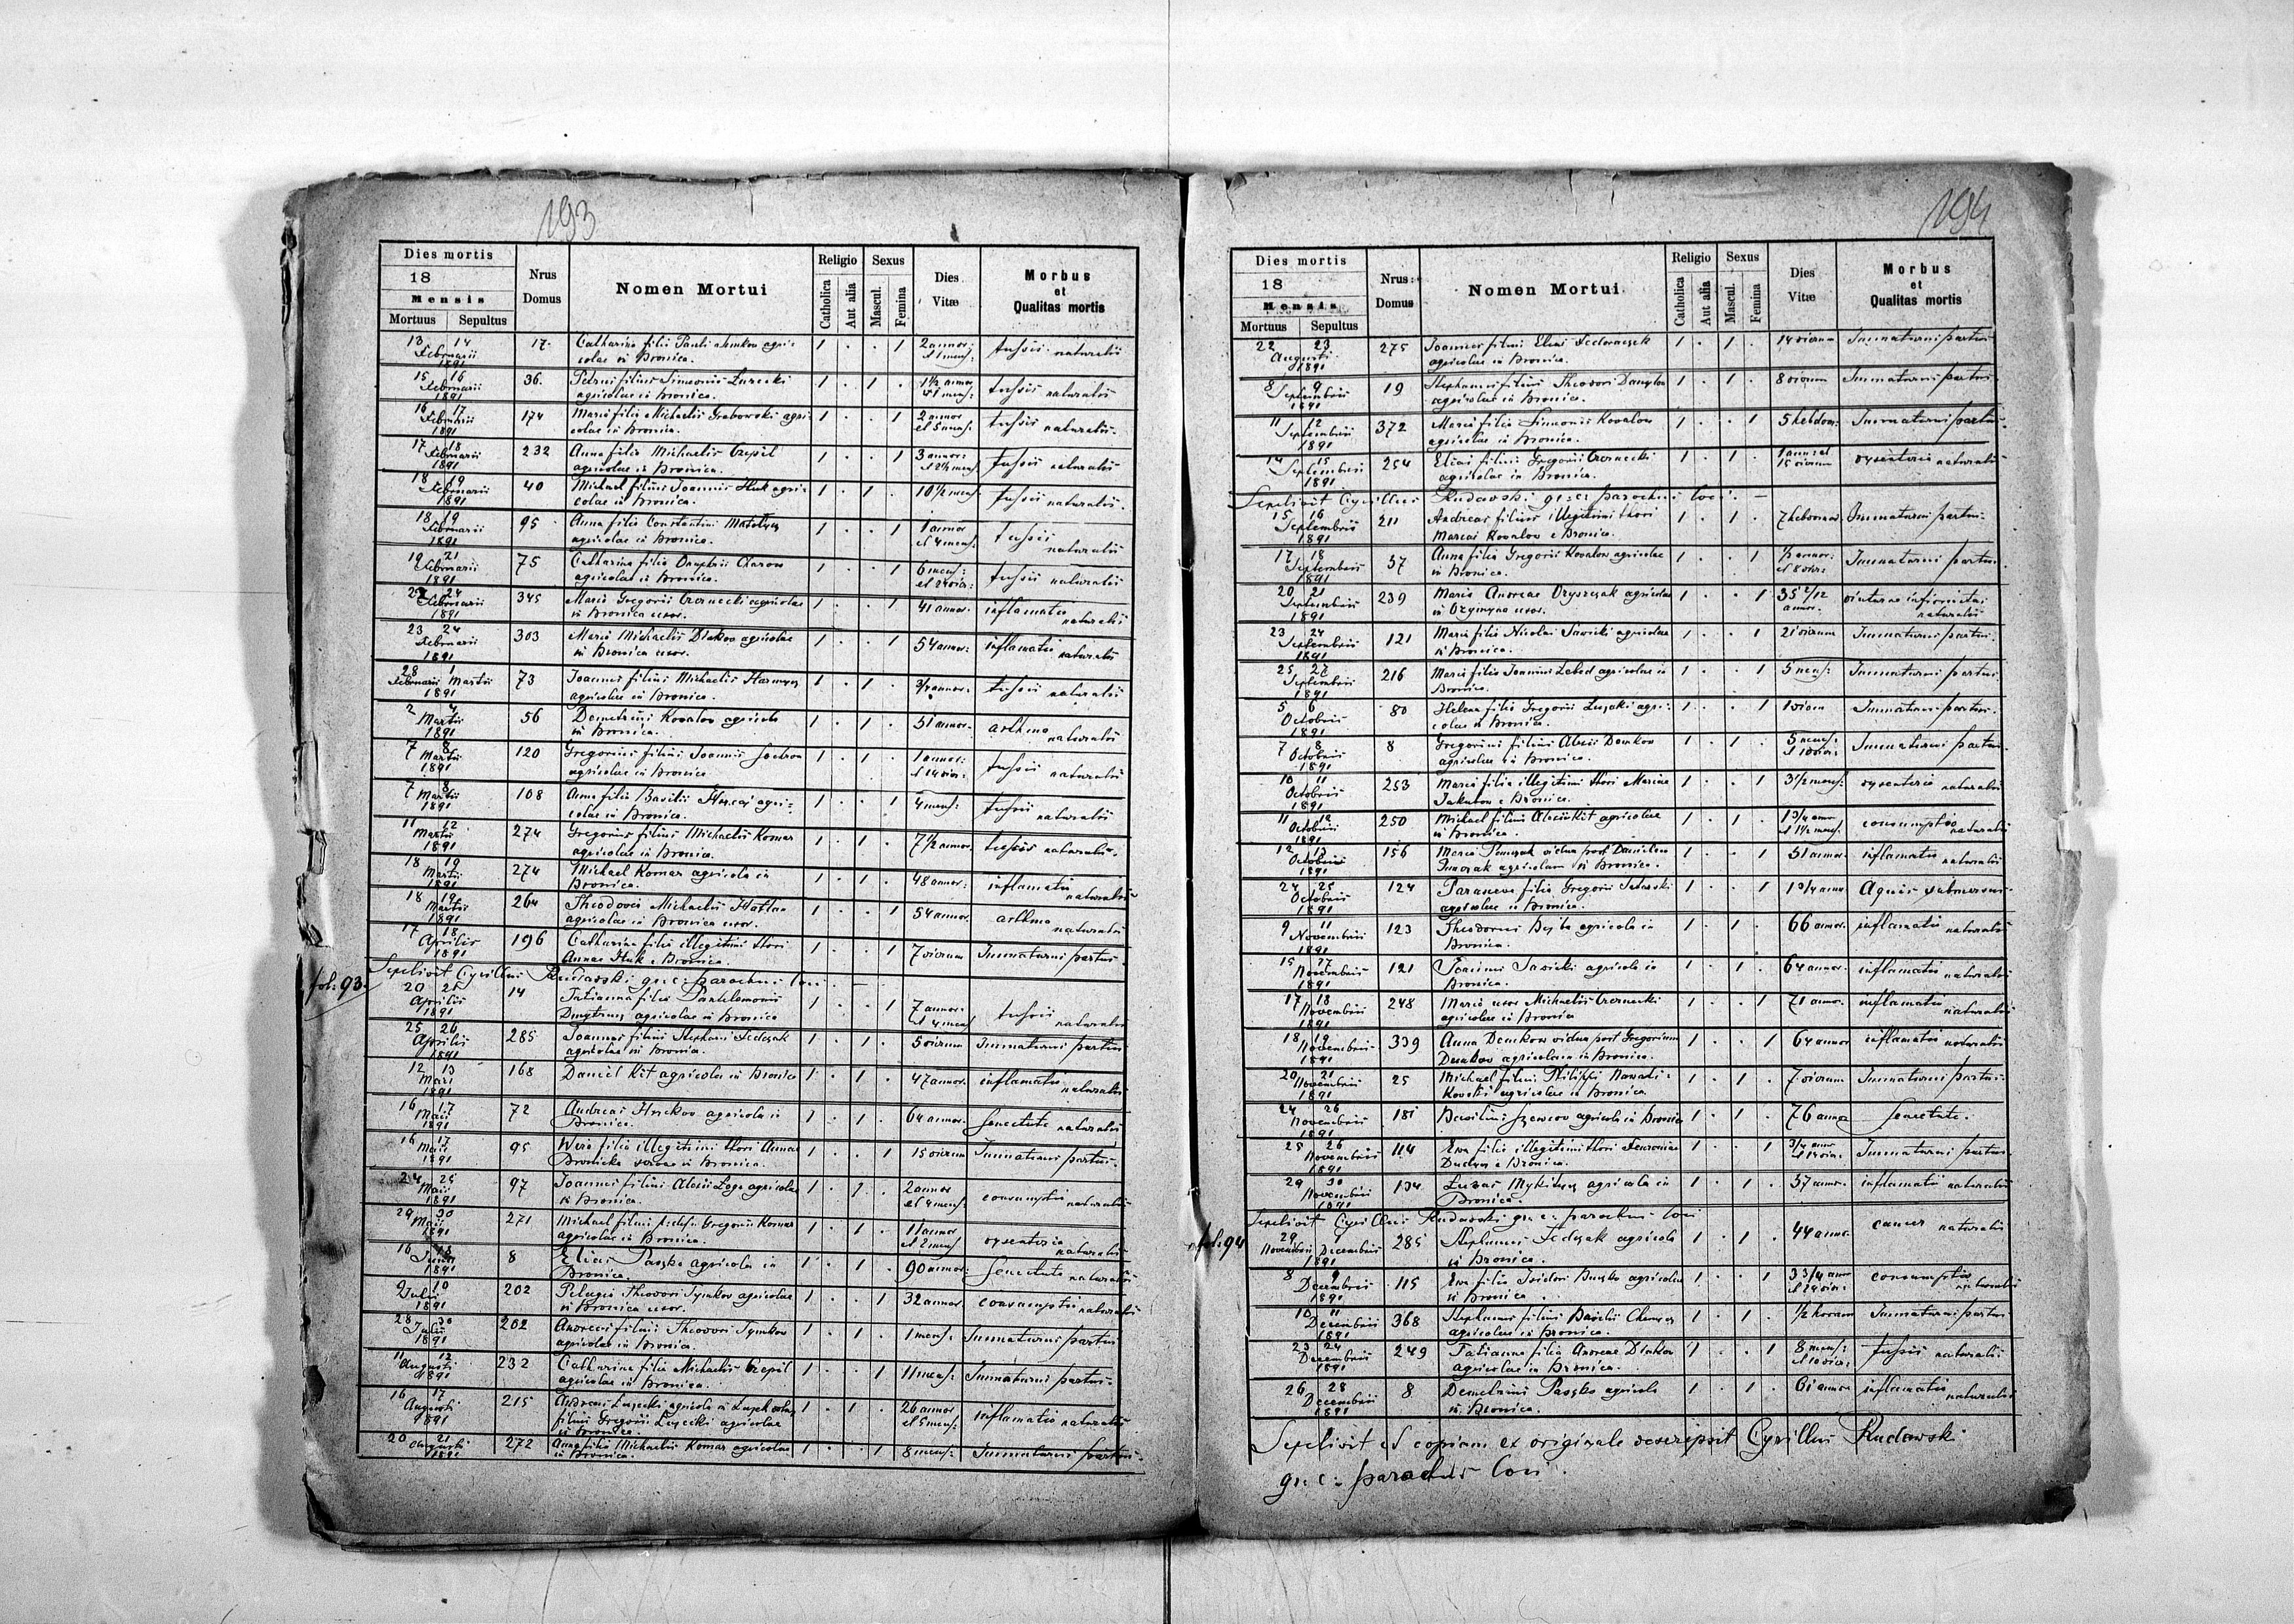 193
Dies mortis
18
Mensis
Mortuus Sepultus
Nrus Domus
Nomen Mortui
Religio
Catholica Aut alia
Sexus
Mascul. Femina
Dies Vitæ
Morbus et Qualitas mortis
13 14 Februarii 1891 17 Catharina filia Pauli agri-
colae in Bronica. 1 . . 1 2 annor: et 1 mens: tussis naturalis
15 16 Februarii 1891 36. Petrus filius Simeonis Luzecki
agricolae in Bronica. 1 . 1 . 1 1/2 annor tussis naturalis
16 17 Februarii 1891 174 Maria filia Michaelis Grabowski agri-
colae in Bronica. 1 . . 1 2 annor et 5 mens: tussis naturalis
17 18 Februarii 1891 232 Anna filia Michaelis Czepil
agricolae in Bronica. 1 . . 1 3 annor: et 2 1/2 mens: tussis naturalis
18 19 Februarii 1891 40 Michael filius Joannis Huk agri-
colae in Bronica. 1 . 1 . 10 1/2 mens: tussis naturalis.
18 19 Februarii 1891 95 Anna filia Constantini
agricolae in Bronica. 1 . . 1 1 annor et 4 mens: tussis naturalis
19 21 Februarii 1891 75 Catharina filia Onuphrii
agricolae in Bronica. 1 . . 1 6 mens: tussis naturalis
24 Februarii 1891 345 Maria Gregorii Czernecki agricolae
in Bronica uxor. 1 . . 1 41 annor. inflamatio naturalis
23 24 Februarii 1891 303 Maria Michaelis Diakov agricolae
in Bronica uxor. 1 . . 1 54 annor: inflamatio naturalis
28 1 Februarii Martii 1891 73 Joannes filius Michaelis
agricolae in Bronica. 1 . 1 . tussis naturalis
2 4 Martii 1891 56 Demetrius Kovalov agricola
in Bronica. 1 . 1 . 51 annor. asthma naturalis
7 8 Martii 1891 120 Gregorius filius Joannis
agricolae in Bronica 1 . 1 . 1 annor: et 14 dier: tussis naturalis
7 8 Martii 1891 108 Anna filia Basilii agri-
colae in Bronica. 1 . . 1 4 mens: tussis naturalis
11 12 Martii 1891 274 Gregorius filius Michaelis Komar
agricolae in Bronica. 1 . 1 . 7 1/2 annor. tussis naturalis.
18 19 Martii 1891 274 Michael Komar agricola in
Bronica. 1 . 1 . 48 annor: inflamatio naturalis
18 19 Martii 1891 264 Theodora Michaelis
agricolae in Bronica uxor. 1 . . 1 54 annor. asthma naturalis
17 18 Aprilis 1891 196 Catharina filia illegitimi thori
Annae Huk e Bronica. 1 . . 1 7 dierum Immaturus partus.
Sepelivit Cyrillus Rudawski gr: c: parochus loci. —
fol. 93.
20 21 Aprilis 1891 14 Tatianna filia Pantelemonis
Dmytrus agricolae in Bronica 1 . . 1 7 annor. et 4 mens tussis naturalis
25 26 Aprilis 1891 285 Joannes filius Stephani Fedczak
agricolae in Bronica. 1 . 1 . 5 dierum Immaturus partus
12 13 Maii 1891 168 Daniel Kit agricola in Bronica 1 . 1 . 47 annor. inflamatio naturalis
16 17 Maii 1891 72 Andreas agricola in
Bronica. 1 . 1 . 64 annor. Senectute naturalis
16 17 Maii 1891 95 Wera filia illegitimi thori Annae
Bronicka in Bronica. 1 . . 1 15 dierum Immaturus partus.
24 25 Maii 1891 97 Joannes filius Alexii agricolae
in Bronica. 1 . 1 . 2 annor et 4 mens: consumptio naturalis
29 30 Maii 1891 271 Michael filius Gregorii Komar
agricolae in Bronica. 1 . 1 . 11 annor et 2 mens dysenteria naturalis
16 18 Junii 1891 8 Elias Paszko agricola in
Bronica. 1 . 1 . 90 annor: Senectute naturalis
10 Julii 1891 202 Pelagia Theodori Tymkov agricolae
in Bronica uxor. 1 . . 1 32 annor. consumptio naturalis
28 30 Julii 1891 202 Andreas filius Theodori Tymkov
agricolae in Bronica. 1 . 1 . 1 mens: Immaturus partus
11 12 Augusti 1891 232 Catharina filia Michaelis Czepil
agricolae in Bronica. 1 . . 1 11 mens: Immaturus partus.
16 17 Augusti 1891 215 Andreas Luzecki agricola in
filius Gregorii Luzecki agricolae
in Bronica. 1 . 1 . 26 annor et 5 mens: inflamatio naturalis
20 21 Augusti 1891 272 Anna filia Michaelis Komar agricolae
in Bronica. 1 . . 1 8 mens: Immaturus partus.
194
Dies mortis
18
Mensis
Mortuus Sepultus
Nrus: Domus
Nomen Mortui
Religio
Catholica Aut alia
Sexus
Mascul. Femina
Dies Vitæ
Morbus et Qualitas mortis
22 23 Augusti 1891 275 Joannes filius Eliae Fedorczak
agricolae in Bronica. 1 . 1 . 14 dierum Immaturus partus
8 9 Septembris 1891 19 Stephanus filius Theodori
agricolae in Bronica. 1 . 1 . 8 dierum Immaturus partus.
11 12 Septembris 1891 372 Maria filia Simeonis Kovalov
agricolae in Bronica. 1 . . 1 5 hebdom: Immaturus partus.
14 15 Septembris 1891 254 Elias filius Gregorii Czernecki
agricolae in Bronica. 1 . 1 . 15 dierum dysenteria naturalis
Sepelivit Cyrillus Rudawski gr: c: parochus loci. —
15 16 Septembris 1891 211 Andreas filius illegitimi thori
Mariae Kovalov e Bronica. 1 . 1 . 7 hebdomar. Immaturus partus.
17 18 Septembris 1891 37 Anna filia Gregorii Kovalov agricolae
in Bronica. 1 . . 1 1/2 annor: et 8 dier: Immaturus partus.
20 21 Septembris 1891 239 Maria Andreae agricolae
in uxor. 1 . . 1 diuturna infirmitas naturalis
23 24 Septembris 1891 121 Maria filia Nicolai Savicki agricolae
in Bronica. 1 . . 1 21 dierum Immaturus partus.
25 27 Septembris 1891 216 Maria filia Joannis Lebed agricolae in
Bronica. 1 . . 1 5 mens: Immaturus partus
5 6 Octobris 1891 80 Helena filia Gregorii agri-
colae in Bronica. 1 . . 1 1 diem Immaturus partus.
7 8 Octobris 1891 8 Gregorius filius Alexii Demkov
agricolae in Bronica. 1 . 1 . 5 mens: et 10 dier: Immaturus partus
10 11 Octobris 1891 253 Maria filia illegitimi thori Mariae
Jakubov e Bronica. 1 . . 1 3 1/2 mens: dysenteria naturalis
11 12 Octobris 1891 250 Michael filius Alexii Kit agricolae
in Bronica. 1 . 1 . 1 3/4 annor et 1 1/2 mens: consumptio naturalis
12 13 Octobris 1891 156 Maria vidua post Danielem
agricolam in Bronica. 1 . . 1 51 annor. inflamatio naturalis
24 25 Octobris 1891 124 Parasceva filia Gregorii
agricolae in Bronica. 1 . . 1 1 3/4 annor Aquis submersus.
9 11 Novembris 1891 123 Theodorus agricola in
Bronica. 1 . 1 . 66 annor. inflamatio naturalis
15 17 Novembris 1891 121 Joannes Savicki agricola in
Bronica. 1 . 1 . 64 annor. inflamatio naturalis
17 18 Novembris 1891 248 Maria uxor Michaelis Czernecki
agricolae in Bronica 1 . . 1 71 annor. inflamatio naturalis
18 19 Novembris 1891 339 Anna Demkov vidua post Gregorium
Demkov agricolam in Bronica. 1 . . 1 64 annor inflamatio naturalis
20 21 Novembris 1891 25 Michael filius Philippi
agricolae in Bronica 1 . 1 . 7 dierum Immaturus partus.
24 26 Novembris 1891 181 Basilius agricola in Bronica 1 . 1 . 76 annor Senectute.
25 26 Novembris 1891 114 Eva filia illegitimi thori
e Bronica. 1 . . 1 3/4 annor et 14 dier: Immaturus partus.
29 30 Novembris 1891 134 Lucas agricola in
Bronica. 1 . 1 . 37 annor. inflamatio naturalis
Sepelivit Cyrillus Rudawski gr: c: parochus loci
fol. 94
29 1 Novembris Decembris 1891 285 Stephanus Fedczak agricola
in Bronica. 1 . 1 . 44 annor. cancer naturalis
8 9 Decembris 1891 115 Eva filia Isidori agricolae
in Bronica. 1 . . 1 3 3/4 annor consumptio naturalis
10 11 Decembris 1891 368 Stephanus filius Basilii
agricolae in Bronica. 1 . 1 . 1/2 horam Immaturus partus
23 24 Decembris 1891 249 Tatianna filia Andreae Diakov
agricolae in Bronica. 1 . . 1 8 mens: et 10 dier: tussis naturalis
26 28 Decembris 1891 8 Demetrius Paszko agricola
in Bronica. 1 . 1 . 61 annor inflamatio naturalis
Sepelivit et copiam ex originale descripsit Cyrillus Rudawski
gr: c: parochus loci.